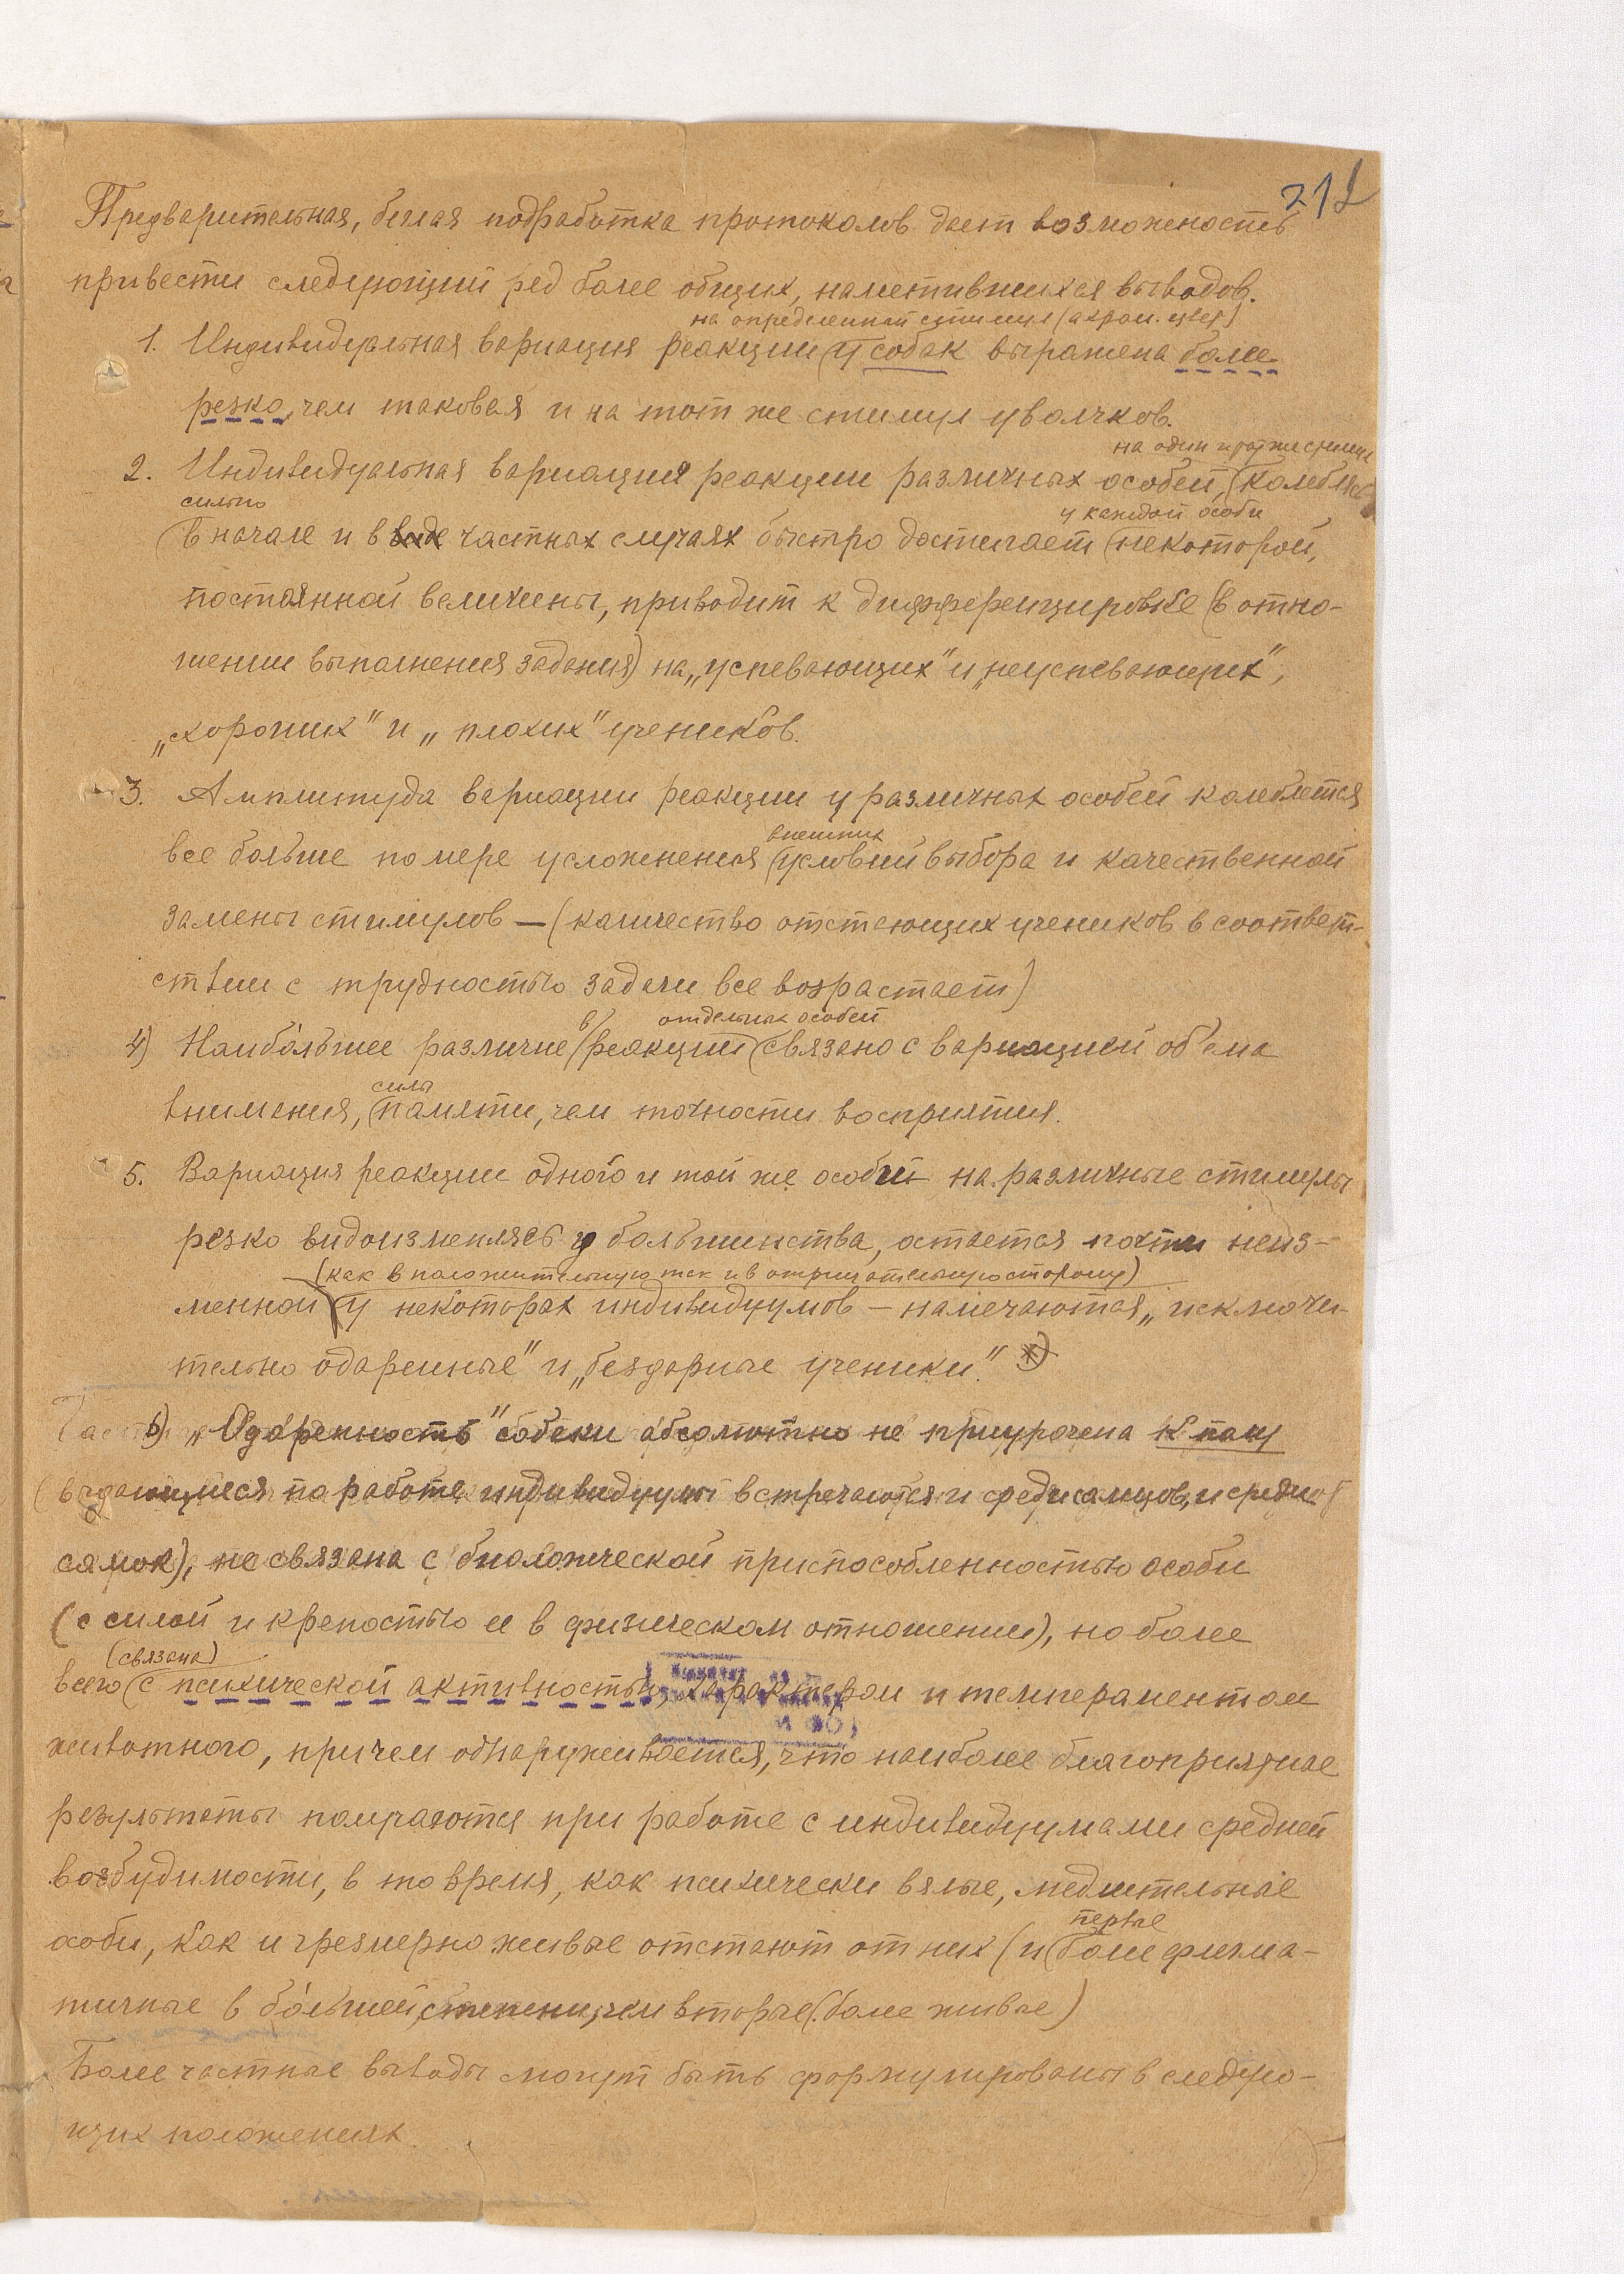 212
Предварительная, беглая подработка протоколов дает возможность
привести следующий ряд более общих, наметившихся выводов.
на определенный стимул (ахром. цвет)
1. Индивидуальная вариация реакции (у собак выражена более
резко, чем таковая и на тот же стимул у волчков.
на один и тот же стимул
2. Индивидуальная вариация реакции различных особей, (колеблясь
сильно
у каждой особи
(в начале и в частных случаях быстро достигает (некоторой,
постоянной величины, приводит к дифференцировке (в отно-
шении выполнения задания) на „успевающих" и „неуспевающих",
„хороших" и „плохих" учеников.
3. Амплитуда вариации реакции у различных особей колеблется
внешних
все больше по мере усложнения (условий выбора и качественной
замены стимулов — (количество отстающих учеников в соответ-
ствии с трудностью задачи все возрастает)
в/ отдельных особей
4) Наибо́льшее различие (реакций (связано с вариацией об'ема
силы
внимания, (памяти, чем точности восприятия.
5. Вариация реакции одного и той же особи на различные стимулы
резко видоизменяясь у большинства, остается почти неиз-
(как в положительную так и в отрицательную сторону)
менной (у некоторых индивидуумов — намечаются „исключи-
тельно одаренные" и „бездарные ученики". *)
6) „Одаренность" собаки абсолютно не приурочена к полу
(выдающиеся по работе индивидуумы встречаются и среди самцов, и среди
самок), не связана с биологической приспособленностью особи
(с силой и крепостью ее в физическом отношении), но более
(связана)
всего (с психической активностью, характером и темпераментом
животного, причем обнаруживается, что наиболее благоприятные
результаты получаются при работе с индивидуумами средней
возбудимости, в то время, как психически вялые, медлительные
особи, как и чрезмерно живые отстают от них (и
первые
(более флегма-
тичные в бо́льшей степени, чем вторые (более живые)
Более частные выводы могут быть формулированы в следую-
щих положениях.